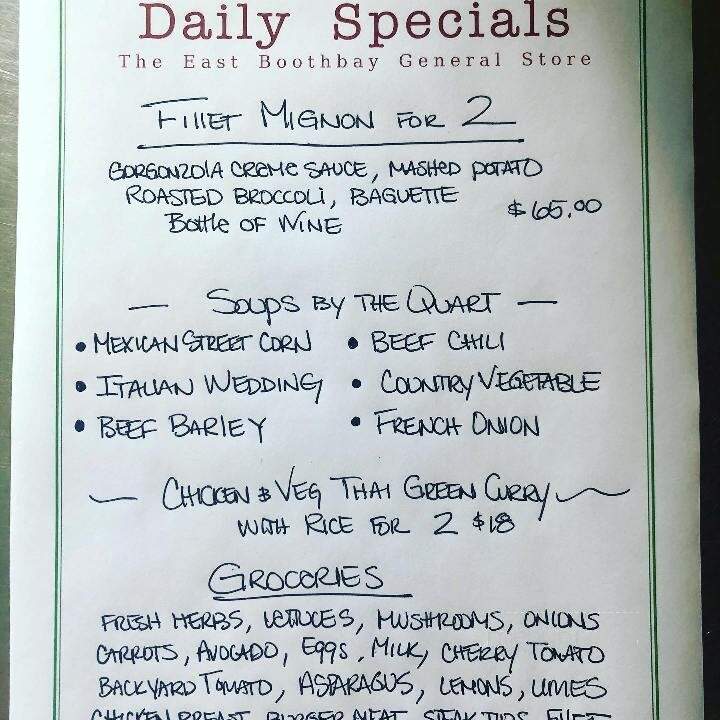 Daily Specials
The East Boothbay General Store
FIllET MIGNON FOR 2
GORGONZOlA CREME SAUCE, MASHED POTATO
ROASTED BROCCOLi, BAGUETTE
BOttle OF WINE
$65.00
— SOUPS BY THE QUART —
• MEXICAN STREET CORN • BEEF CHILI
• ITALIAN WEDDING • COUNTRY VEGETABLE
• BEEF BARLEY • FRENCH ONION
~ CHICKEN & VEG THAI GREEN CURRY ~
WITH RICE FOR 2 $18
GROCERIES
FRESH HERBS, LETTUCES, MUSHROOMS, ONIONS
CARROTS, AVOCADO, Eggs, MILK, CHERRY TOMATO
BACKYARD TOMATO, ASPARAGUS, LEMONS, LIMES
CHICKEN BREAST, BURGER MEAT, STEAK TIPS, FILET